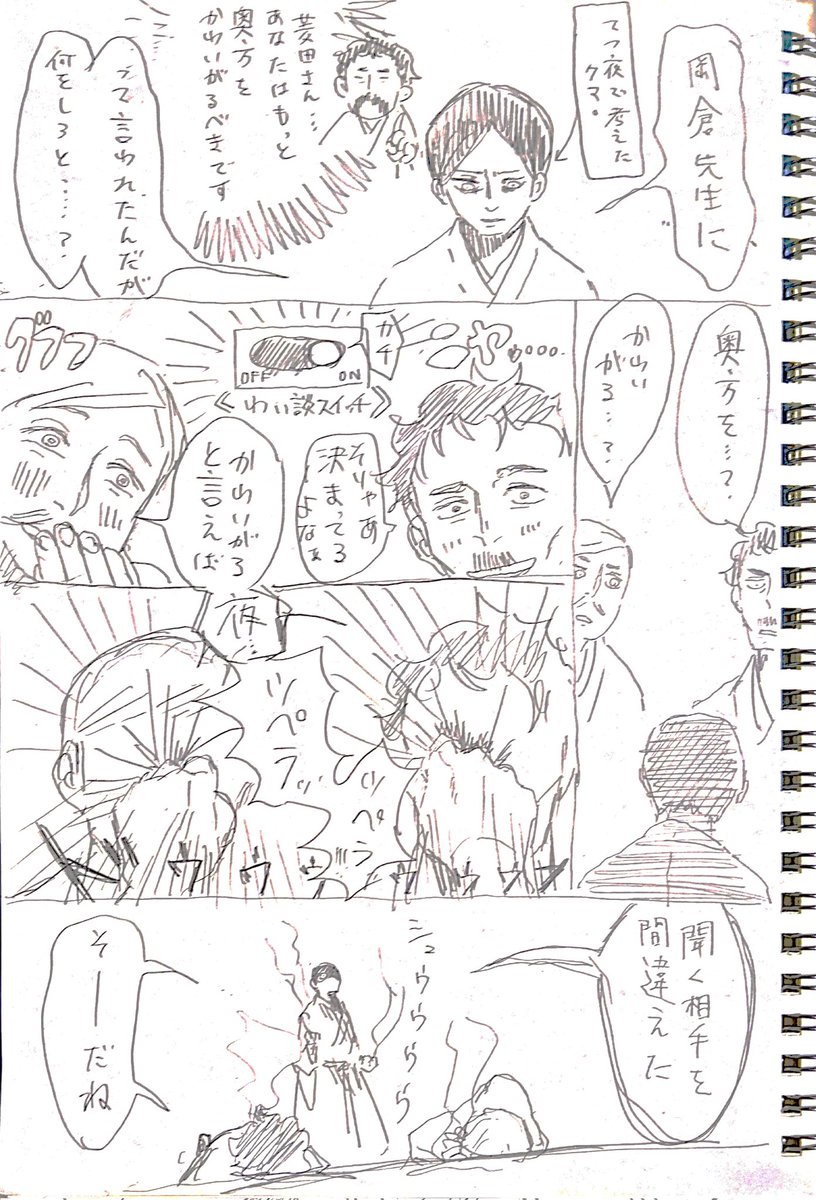 岡倉先生に
てつ夜で考えた
クマ。
菱田さん…
あなたはもっと
奥方を
かわいがるべきです
って言われたんだが
何をしろと……？
奥方を…？
かわい
がる…？
ニヤァ…
カチ
OFF ON
《わい談スイッチ》
そりゃあ
決まってる
よなぁ
グフフ
かわいがる
と言えば
夜…
ツペラ
ツペラ
ドドウウウ
ウウウ
聞く相手を
間違えた
シュウウゥゥゥ
そーだね